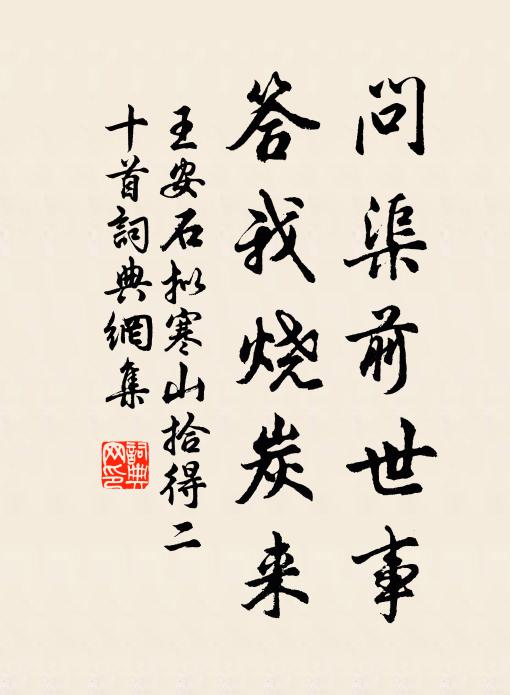 问渠前世事
答我烧炭来
王安石拟寒山拾得二
十首詞典網集
詞典
网印